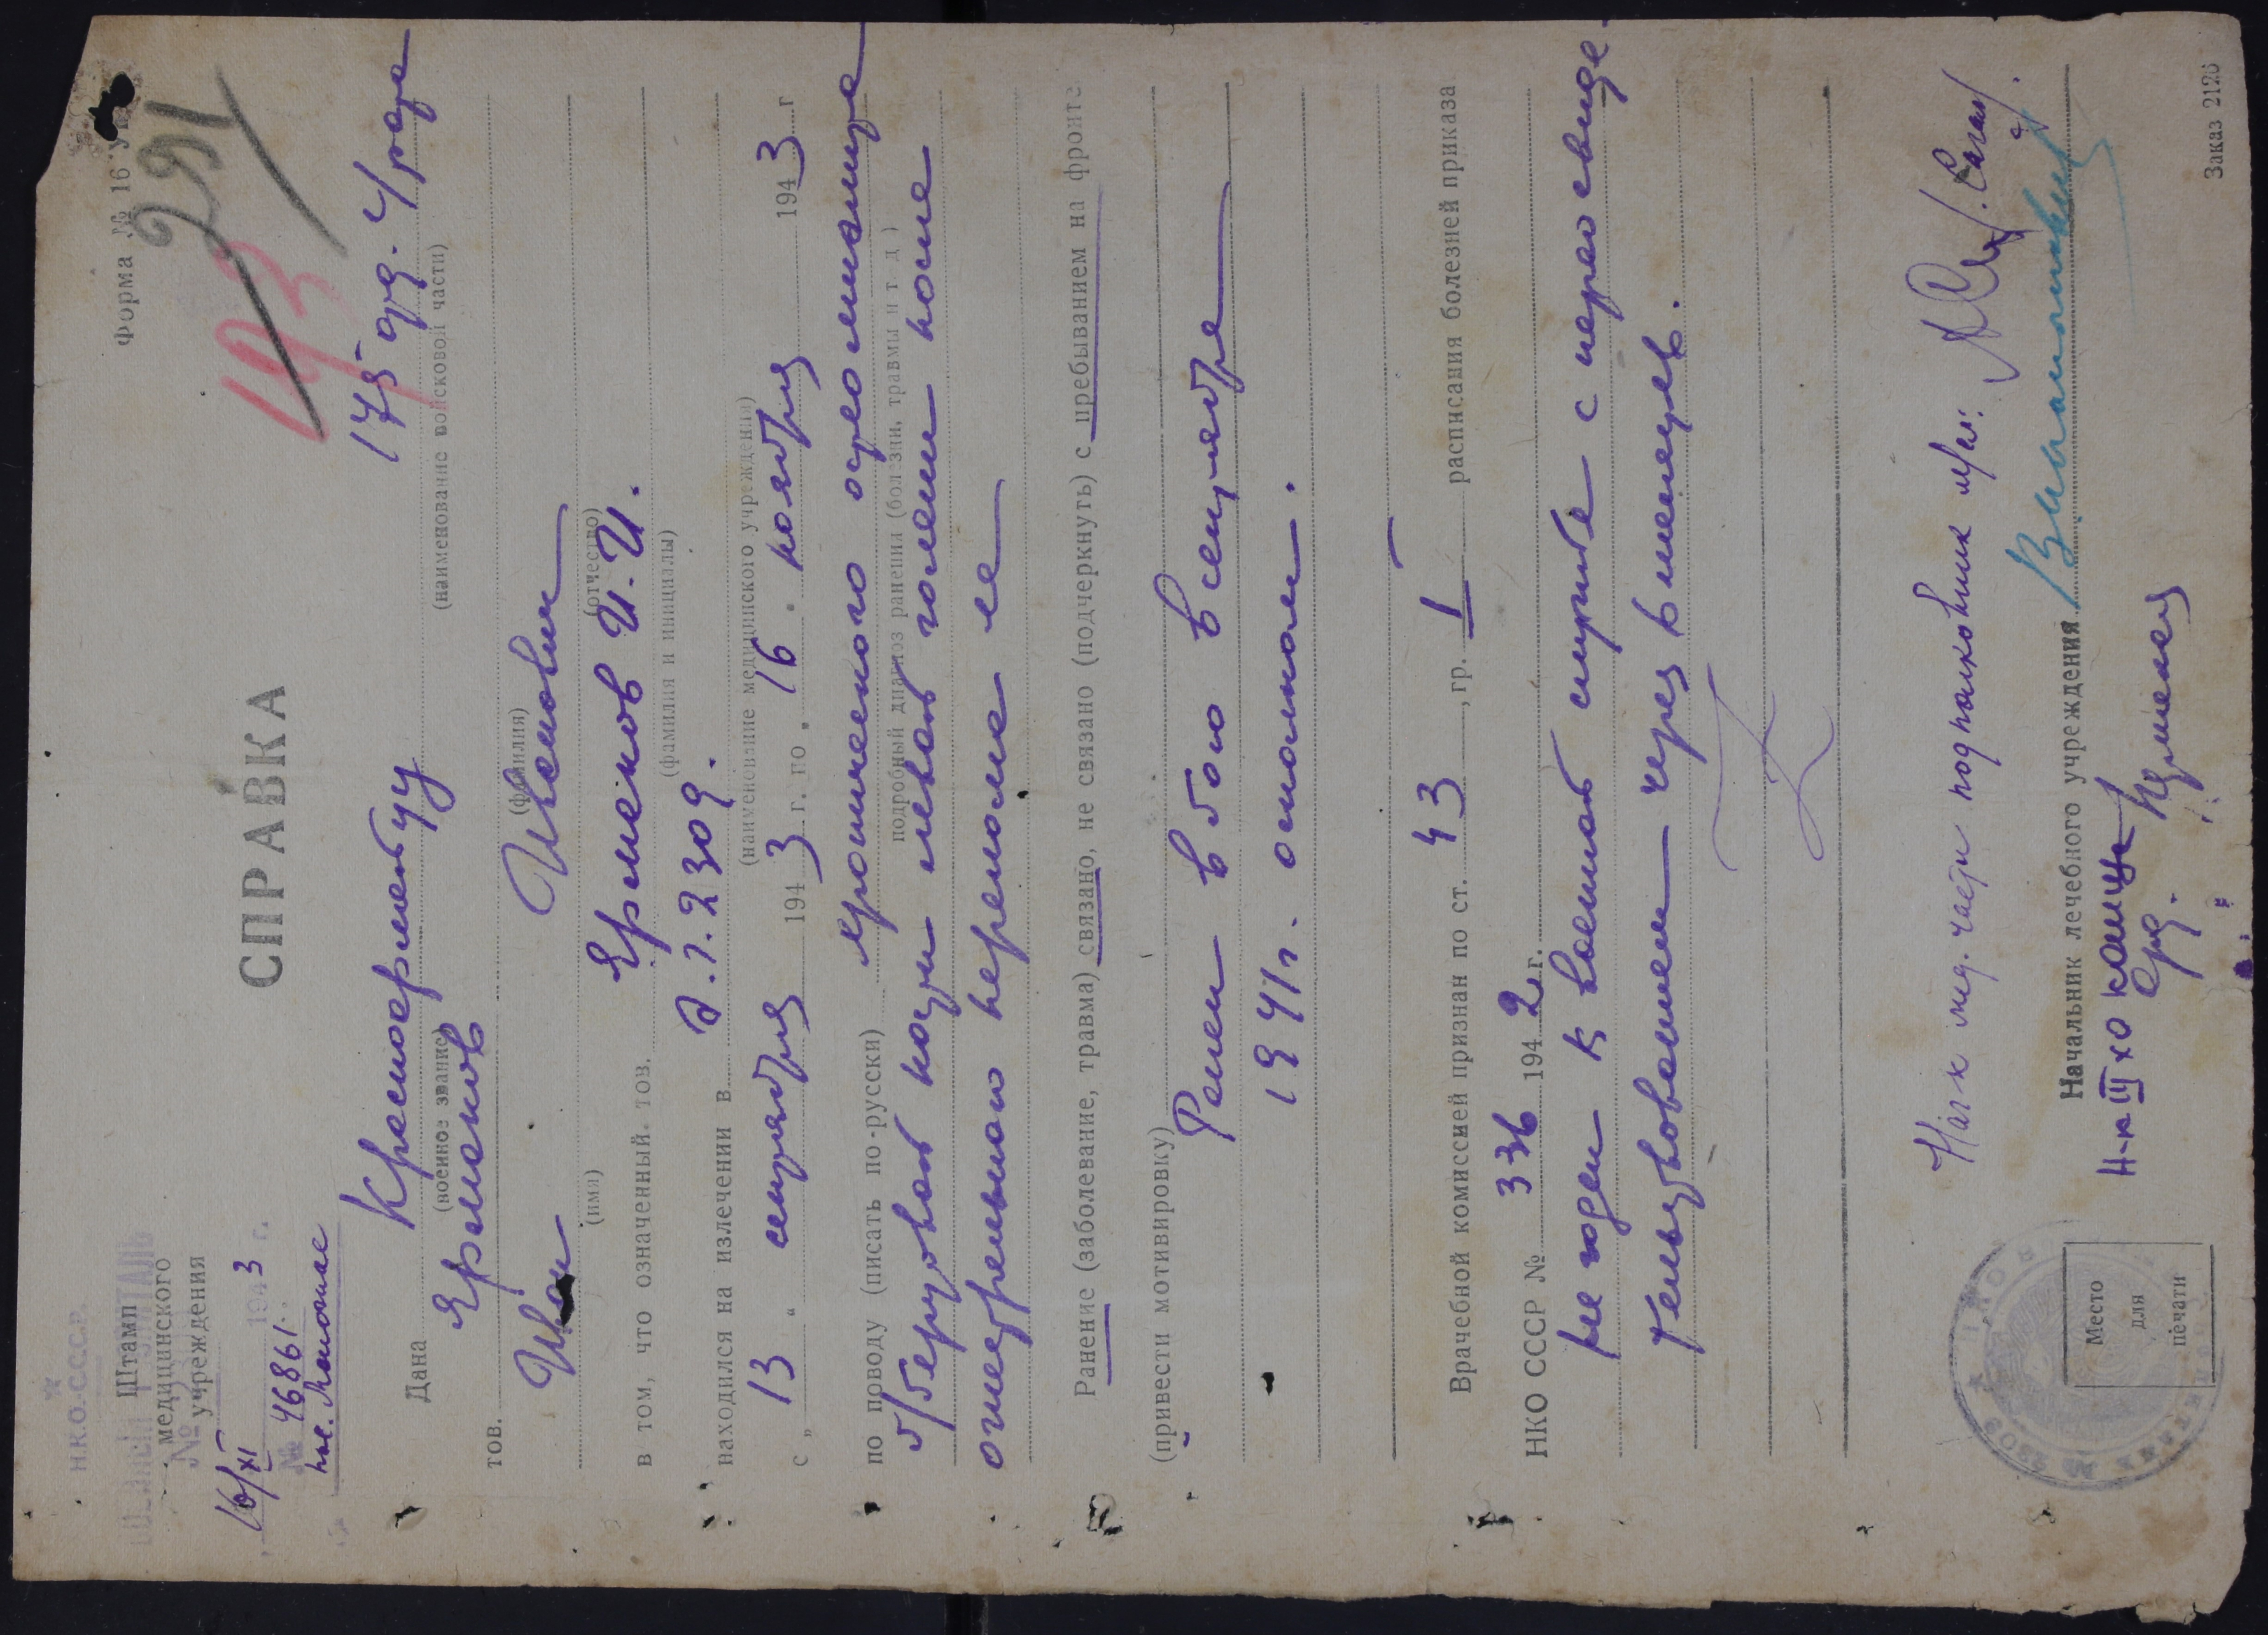 Форма № 16
291
193
Н.К.О.-С.С.С.Р.
ГОСПИТАЛЬ
Штамп
медицинского
№ учреждения
16/XI 1943 г.
№ 46861
СПРАВКА
Дана Красноармейцу 175 арт.
(военное звание) (наименование войсковой части)
тов. Ермаков
(фамилия)
Иван Иванович
(имя) (отчество)
в том, что означенный тов. Ермаков И. И.
(фамилия и инициалы)
находился на излечении в э.г. 2309.
(наименование медицинского учреждения)
с „ 13 “ сентября 1943 г. по „ 16 . ноября 1943 г
по поводу (писать по-русски) хронического остеомиелита
подробный диагноз ранения (болезни, травмы и т д)
б/берцовой кости левой голени после
огнестрельного перелома ее
Ранение (заболевание, травма) связано, не связано (подчеркнуть) с пребыванием на фронте
(привести мотивировку)
Ранен в бою в сентябре
1941г. осколком.
Врачебной комиссией признан по ст. 43, гр. I расписания болезней приказа
НКО СССР № 336 1942 г.
не годен к военной службе с переосвиде-
тельствованием через 6 месяцев.
Нач-к мед. части подполковник м/с:
Начальник лечебного учреждения
Н-к III хо капитан
Место
для
печати
Заказ 2126